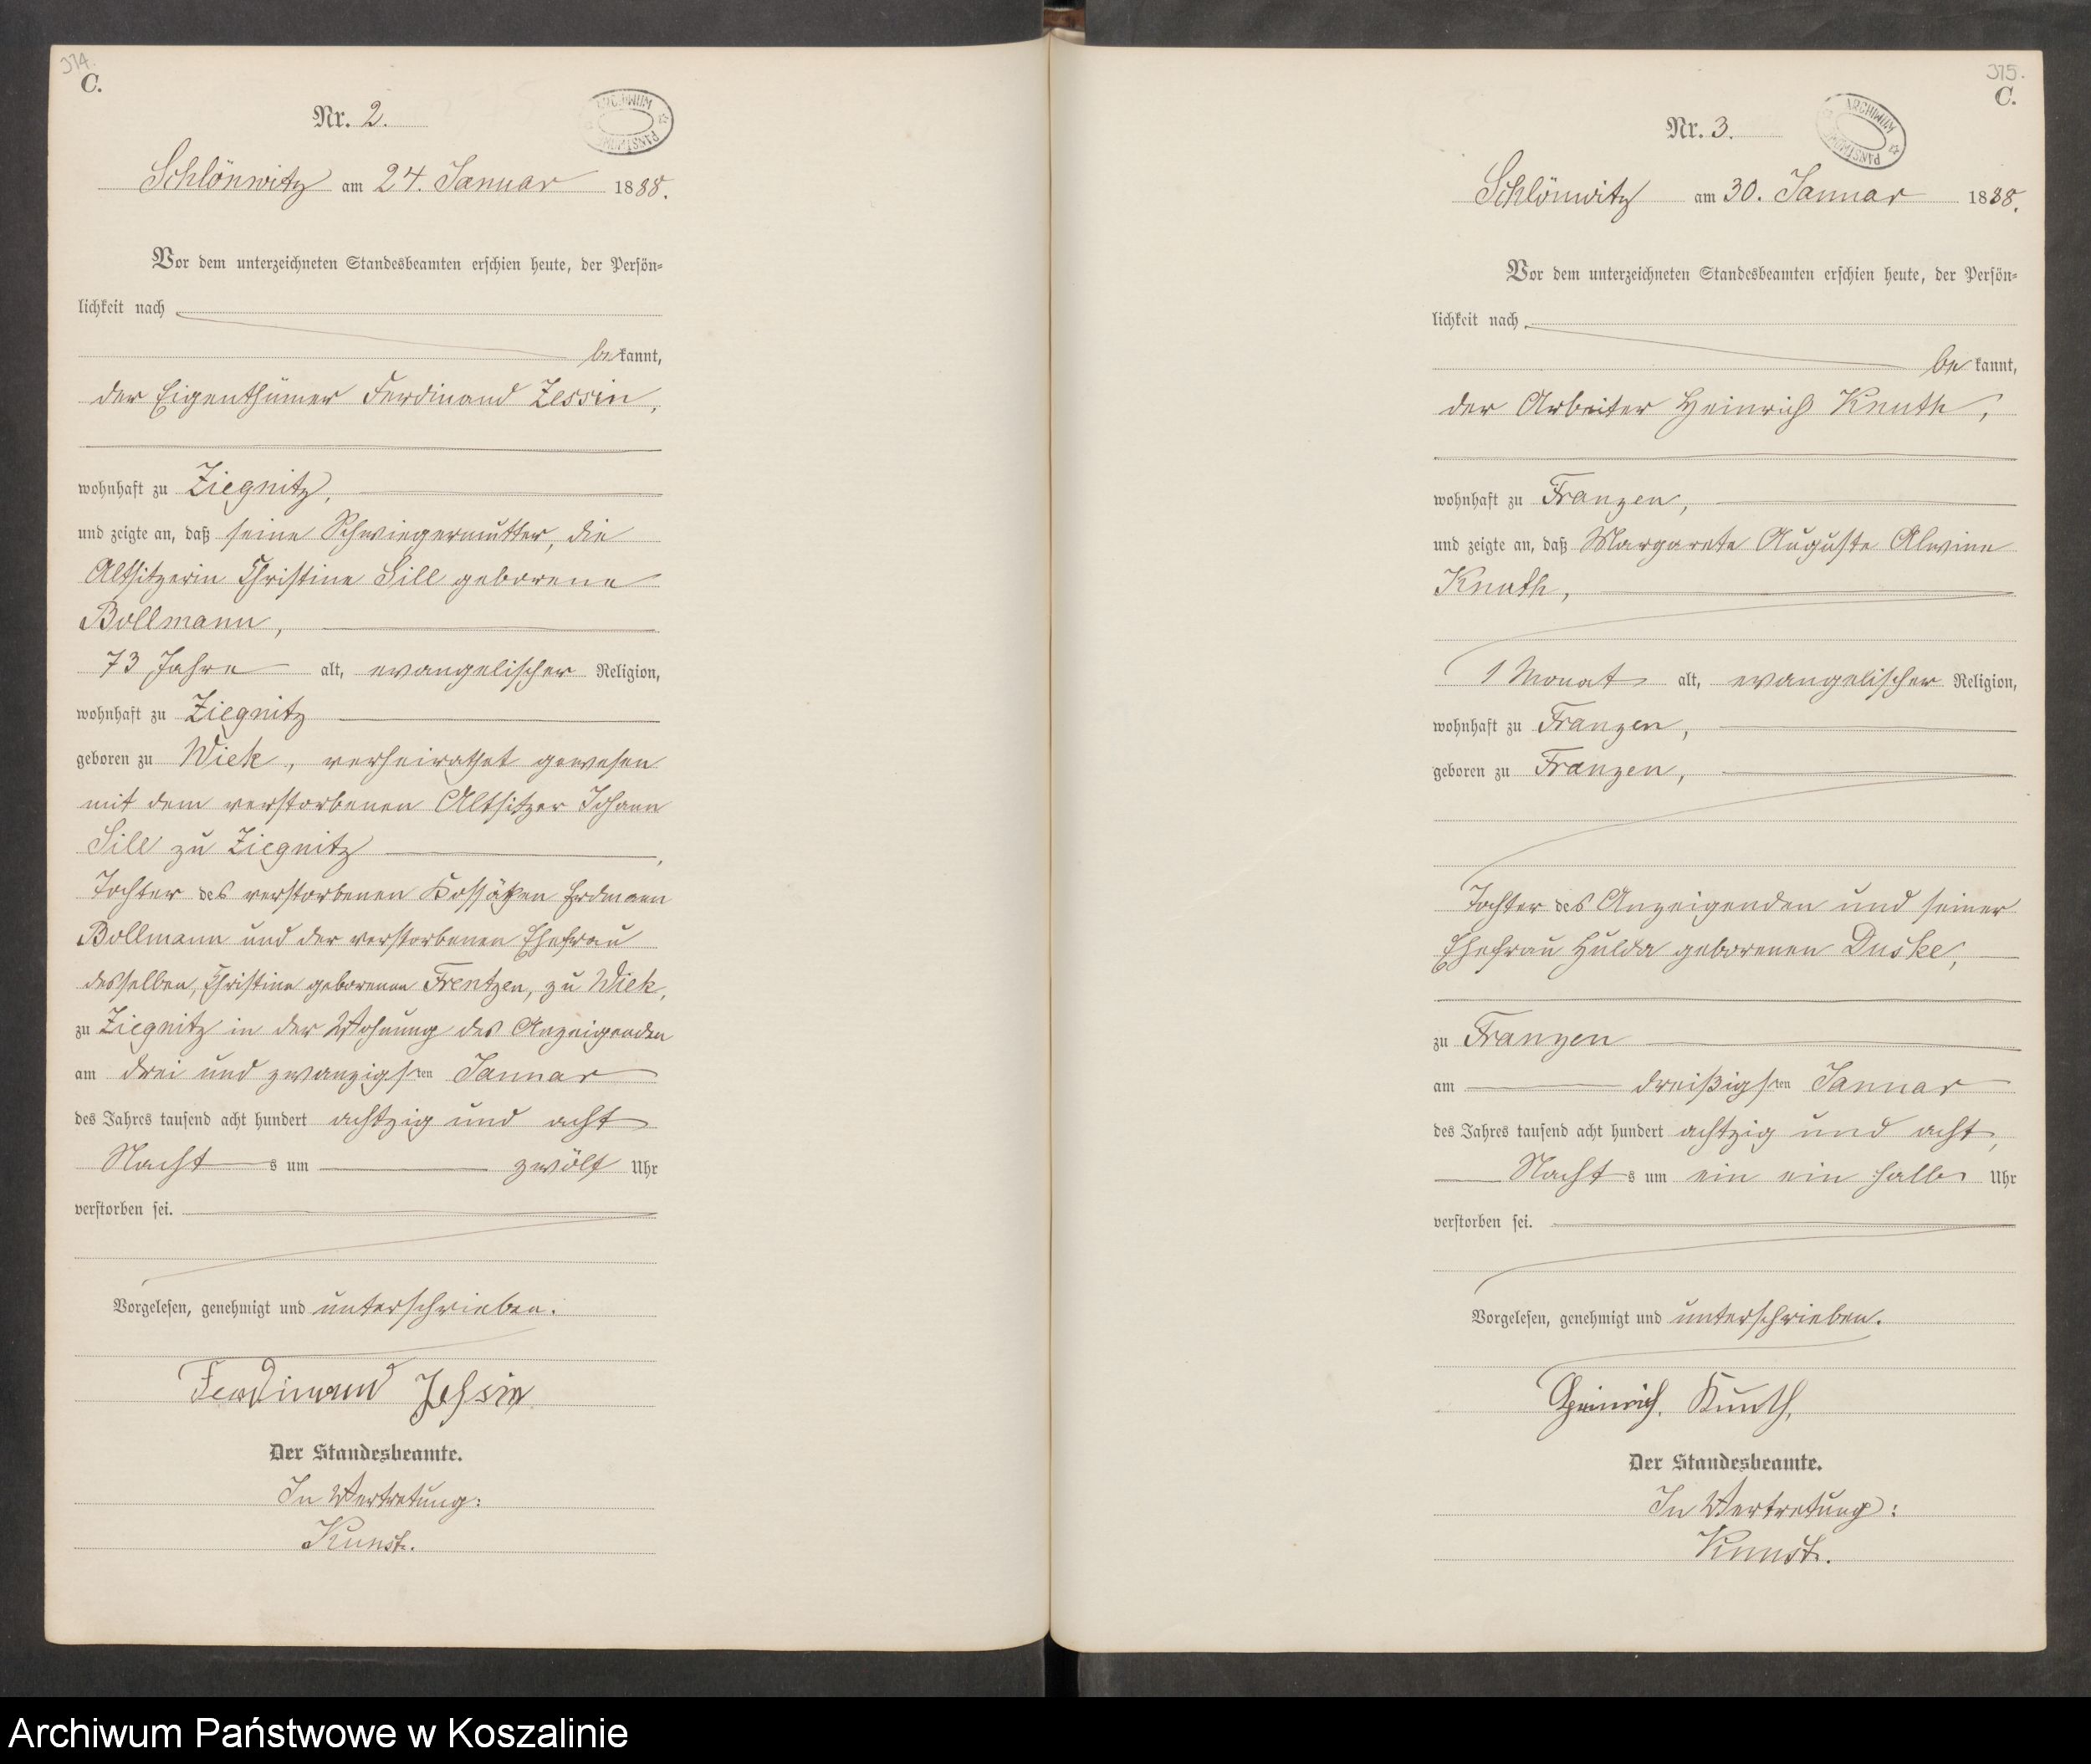 374.
C.
Nr. 2.
ARCHIWUM PAŃSTWOWE
Schlönwitz am 24. Januar 1888.
Vor dem unterzeichneten Standesbeamten erschien heute, der Persön-
lichkeit nach
be kannt,
der Eigenthümer Ferdinand Zessin,
wohnhaft zu Ziegnitz,
und zeigte an, daß seine Schwiegermutter, die
Altsitzerin Christine Sill geborene
Bollmann,
73 Jahre alt, evangelischer Religion,
wohnhaft zu Ziegnitz
geboren zu Wiek, verheirathet gewesen
mit dem verstorbenen Altsitzer Johann
Sill zu Ziegnitz,
Tochter des verstorbenen Kossäthen Erdmann
Bollmann und der verstorbenen Ehefrau
desselben, Christine geborenen Frentzen, zu Wiek,
zu Ziegnitz in der Wohnung des Anzeigenden
am drei und zwanzigsten Januar
des Jahres tausend acht hundert achtzig und acht
Nachts um zwölf Uhr
verstorben sei.
Vorgelesen, genehmigt und unterschrieben.
Ferdinand Zessin
Der Standesbeamte.
In Vertretung:
Kunst.
375.
C.
Nr. 3.
ARCHIWUM PAŃSTWOWE
Schlönwitz am 30. Januar 1888.
Vor dem unterzeichneten Standesbeamten erschien heute, der Persön-
lichkeit nach
be kannt,
der Arbeiter Heinrich Knuth,
wohnhaft zu Franzen,
und zeigte an, daß Margarete Auguste Alwine
Knuth,
1 Monat alt, evangelischer Religion,
wohnhaft zu Franzen,
geboren zu Franzen,
Tochter des Anzeigenden und seiner
Ehefrau Hulda geborenen Duske,
zu Franzen
am dreißigsten Januar
des Jahres tausend acht hundert achtzig und acht,
Nachts um ein ein halb Uhr
verstorben sei.
Vorgelesen, genehmigt und unterschrieben.
Heinrich Knuth,
Der Standesbeamte.
In Vertretung:
Kunst.
Archiwum Państwowe w Koszalinie